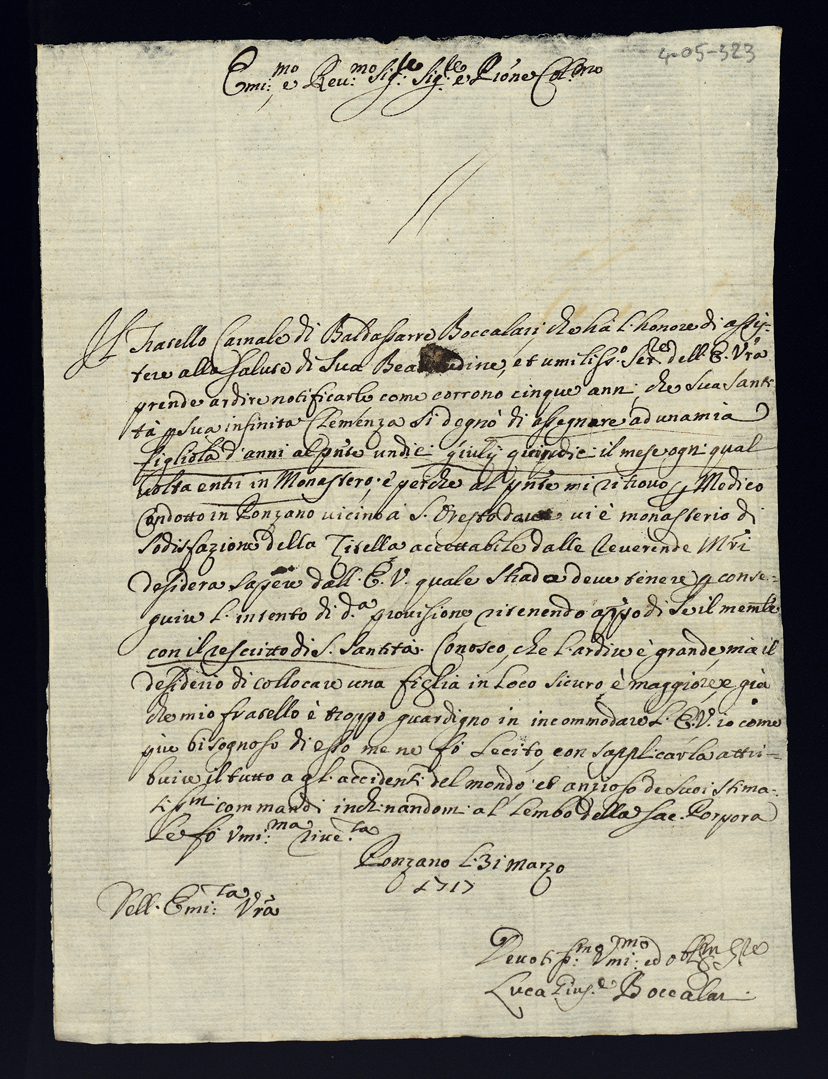 4-05-323
Emi:mo e Reu:mo Sig:re Sig:re e Prone Col:mo
Il Fratello Carnale di Baldassarre Boccalari, che hà l'honore di assis-
tere alla salute di Sua Beatitudine, et umiliss:o Ser:re dell'E. Vra
prende ardire notificarle come corrono cinque anni, che Sua Santi
tà p Sua infinita Clemenza si degnò di assegnare ad una mia
figliola d'anni al pnte undici giulij quindici il mese ogni qual
volta entri in Monastero; e perche al pnte mi ritrovo p Medico
Condotto in Ponzano vicino à S. Oresto dove vi è monasterio di
sodisfazione della Zitella accettabile dalle Reverende Mri
desidera sapere dall'E. V. quale strada deve tenere p conse-
guire l'intento di d.a provisione ritenendo appo di se il memle
con il rescritto di S. Santità. Conosco, che l'ardire è grande, mà il
desiderio di collocare una figlia in loco sicuro è maggiore, e già
che mio fratello è troppo guardigno in incommodare l'E. V. io come
più bisognoso di esso me ne fò lecito, con supplicarla attri-
buire il tutto a gl'accidenti del mondo; et anzioso de suoi stima-
tiss:mi commandi inchinandomi al lembo della Sac. Porpora
le fò Vmi:ma rive:za
Ponzano l'31 Marzo
1717
Dell'Emi:za Vra
Devotiss:mo Vmi:mo ed obblmo Sre
Luca Gius.e Boccalari